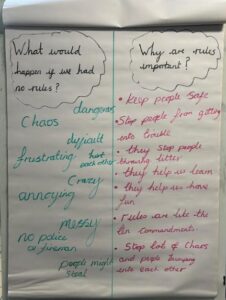 What would
happen if we had
no rules?
dangerous
Chaos
difficult
frustrating
hurt
each other
Crazy
annoying
messy
no police
or fireman
people might
steal
Why are rules
important?
• Keep people safe
• Stop people from getting
into trouble
• they stop people
throwing litter
• they help us learn
• they help us have
fun
• rules are like the
ten commandments.
• Stop lots of chaos
and people bumping
into each other